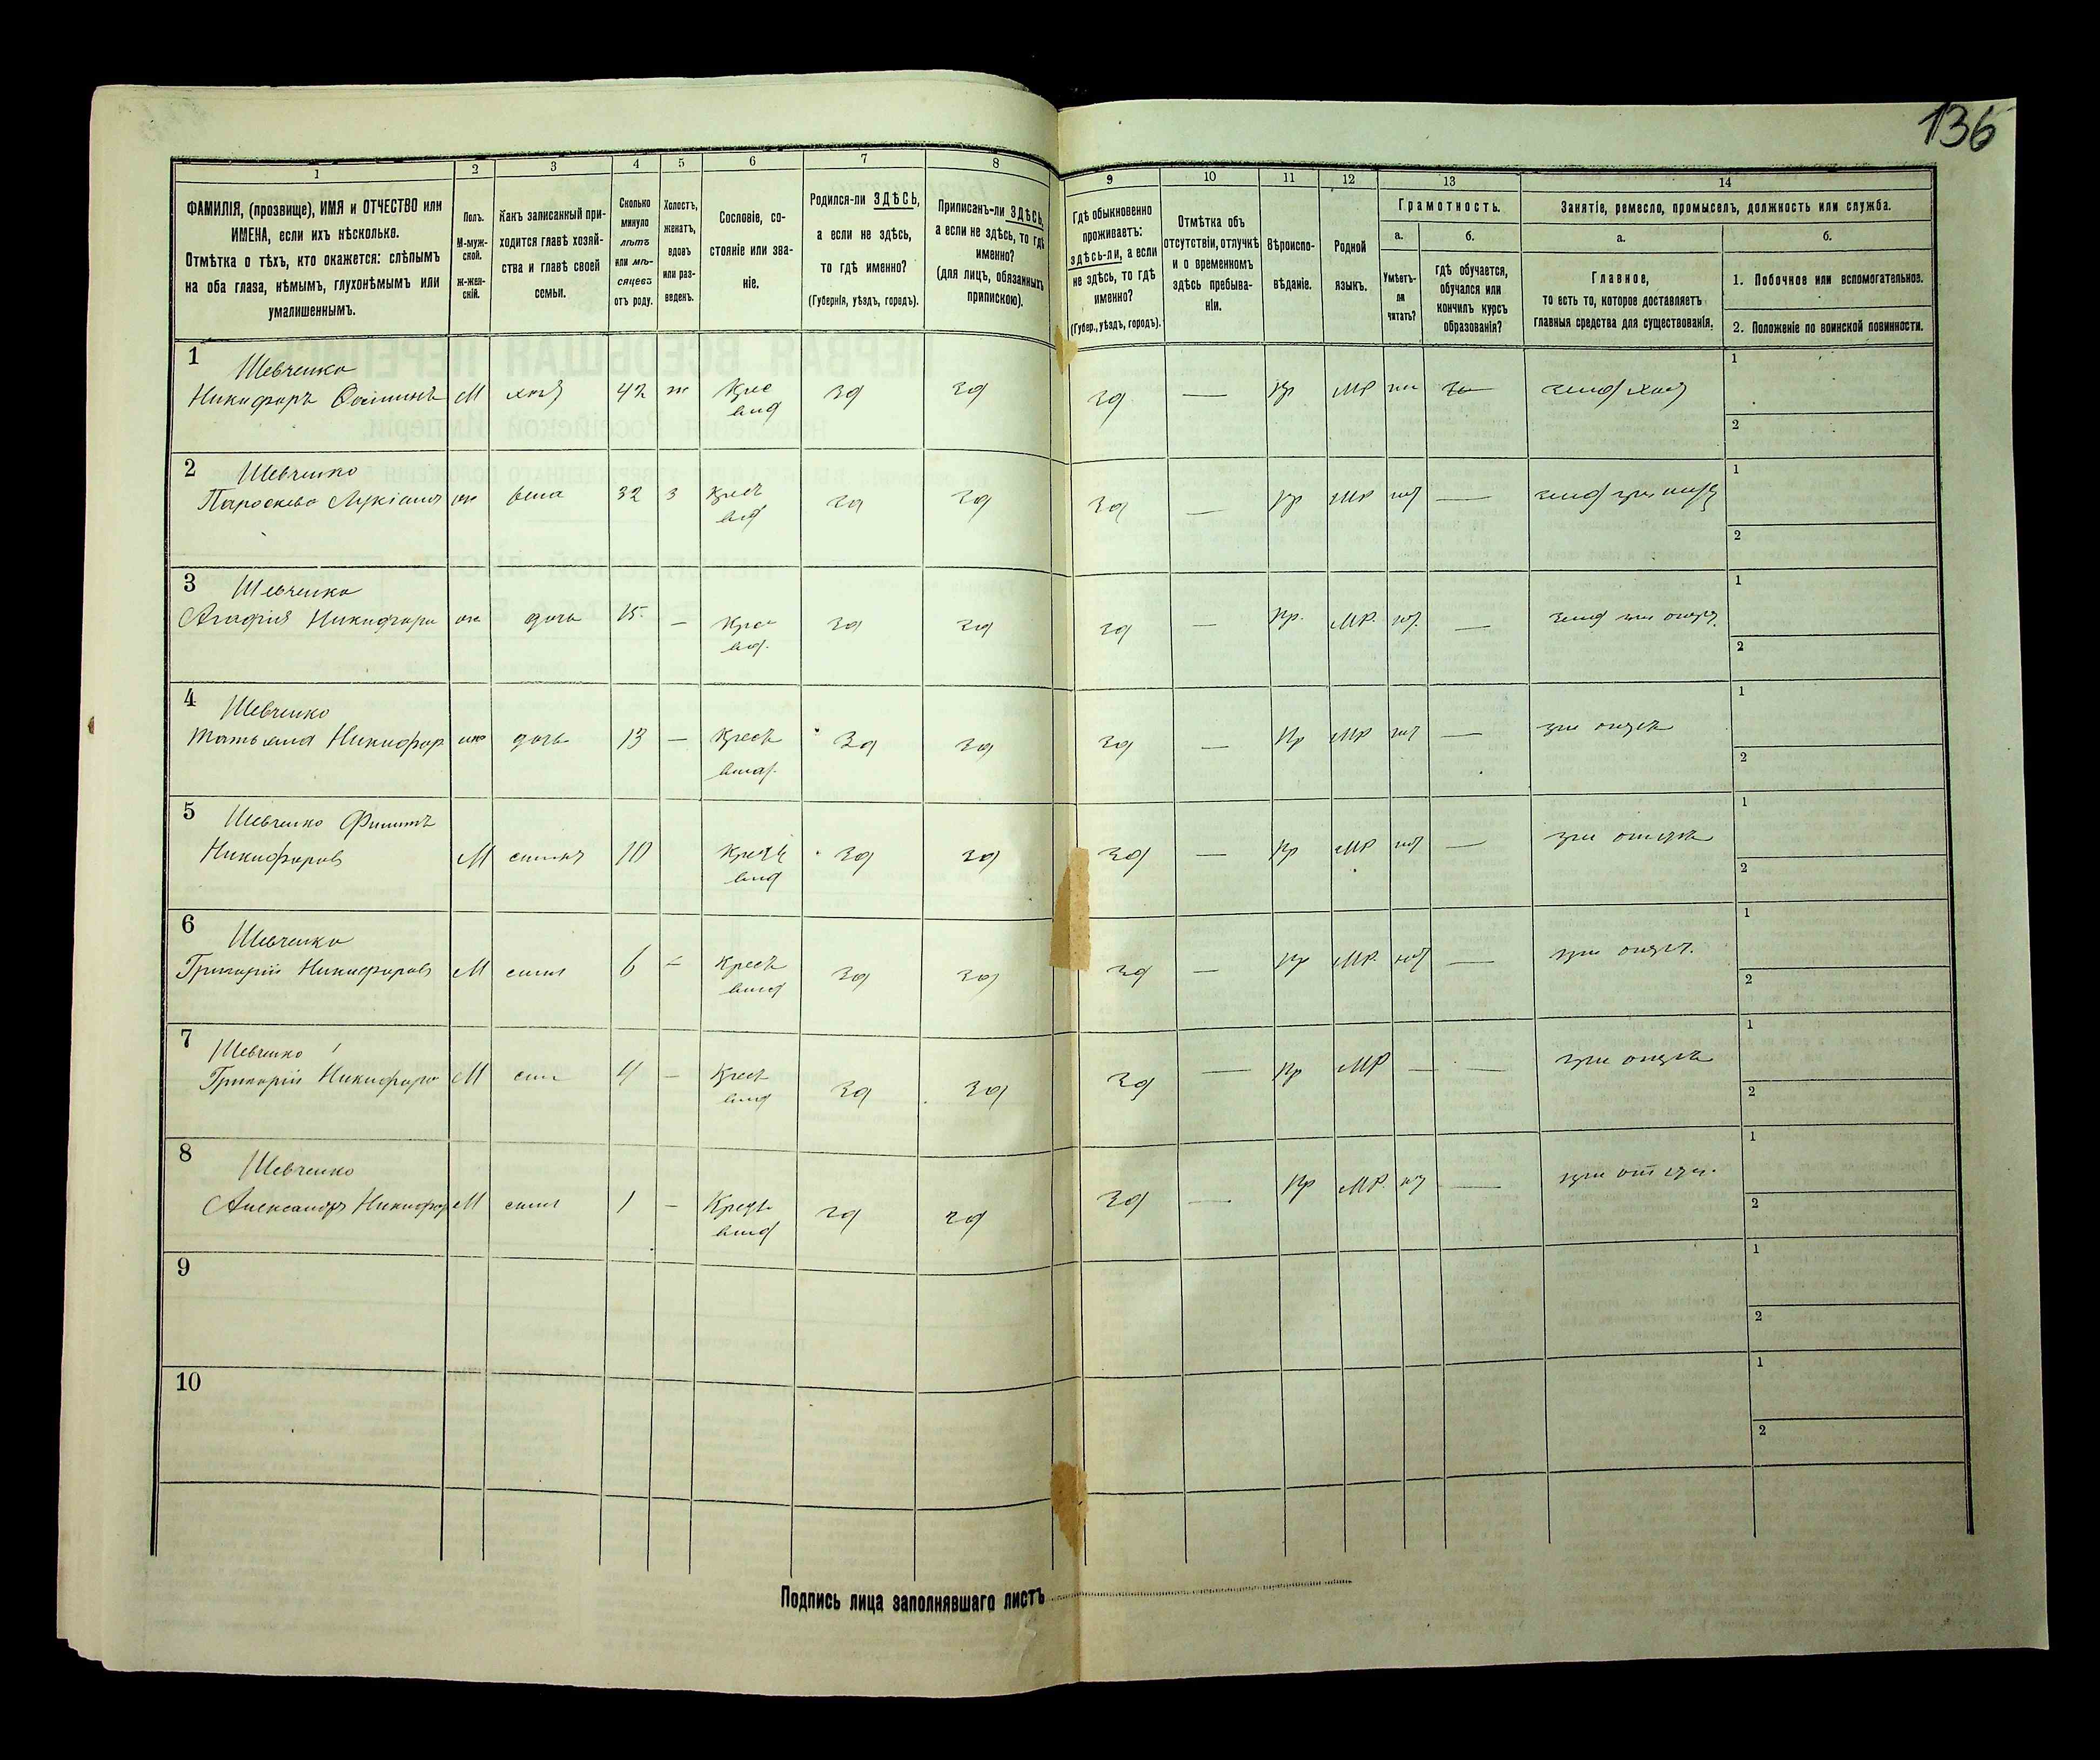 136
1
2
3
4
5
6
7
8
9
10
11
12
13
14
ФАМИЛІЯ, (прозвище), ИМЯ и ОТЧЕСТВО или
ИМЕНА, если ихъ нѣсколько.
Отмѣтка о тѣхъ, кто окажется: слѣпымъ
на оба глаза, нѣмымъ, глухонѣмымъ или
умалишеннымъ.
Полъ.
М-муж-
ской.
Ж-жен-
скій.
Какъ записанный при-
ходится главѣ хозяй-
ства и главѣ своей
семьи.
Сколько
минуло
лѣтъ
или мѣ-
сяцевъ
отъ роду.
Холостъ,
женатъ,
вдовъ
или раз-
веденъ.
Сословіе, со-
стояніе или зва-
ніе.
Родился-ли ЗДѢСЬ,
а если не здѣсь,
то гдѣ именно?
(Губернія, уѣздъ, городъ).
Приписанъ-ли ЗДѢСЬ,
а если не здѣсь, то гдѣ
именно?
(для лицъ, обязанныхъ
припискою).
Гдѣ обыкновенно
проживаетъ:
здѣсь-ли, а если
не здѣсь, то гдѣ
именно?
(Губер., уѣздъ, городъ).
Отмѣтка объ
отсутствіи, отлучкѣ
и о временномъ
здѣсь пребыва-
ніи.
Вѣроиспо-
вѣданіе.
Родной
языкъ.
Грамотность.
а.
Умѣетъ-
ли
читать?
б.
гдѣ обучается,
обучался или
кончилъ курсъ
образованія?
Занятіе, ремесло, промыселъ, должность или служба.
а.
Главное,
то есть то, которое доставляетъ
главныя средства для существованія.
б.
1. Побочное или вспомогательное.
2. Положеніе по воинской повинности.
1 Шевченко
Никифоръ М 42 ж Крес зд зд зд Пр МР
1
2
2 Шевченко
Параскева Лукіан жена 32 з Крест зд зд зд Пр МР
1
2
3 Шевченко
Агафія Никифоро дочь 15 Крес зд зд зд Пр. МР.
1
2
4 Шевченко
Татьяна Никифор дочь 13 Крест зд зд зд Пр МР при отцѣ
1
2
5 Шевченко Филипъ
Никифоров М сынъ 10 Крест зд зд зд Пр МР при отцѣ
1
2
6 Шевченко
Григорій Никифоров М сынъ 6 Крест зд зд зд Пр МР. при отцѣ
1
2
7 Шевченко
Григорій Никифоро М сын 4 Крест зд зд зд Пр МР при отцѣ
1
2
8 Шевченко
Александръ Никифор М сынъ 1 Крест зд зд зд Пр МР. при отцѣ
1
2
9
1
2
10
1
2
Подпись лица заполнявшаго листъ